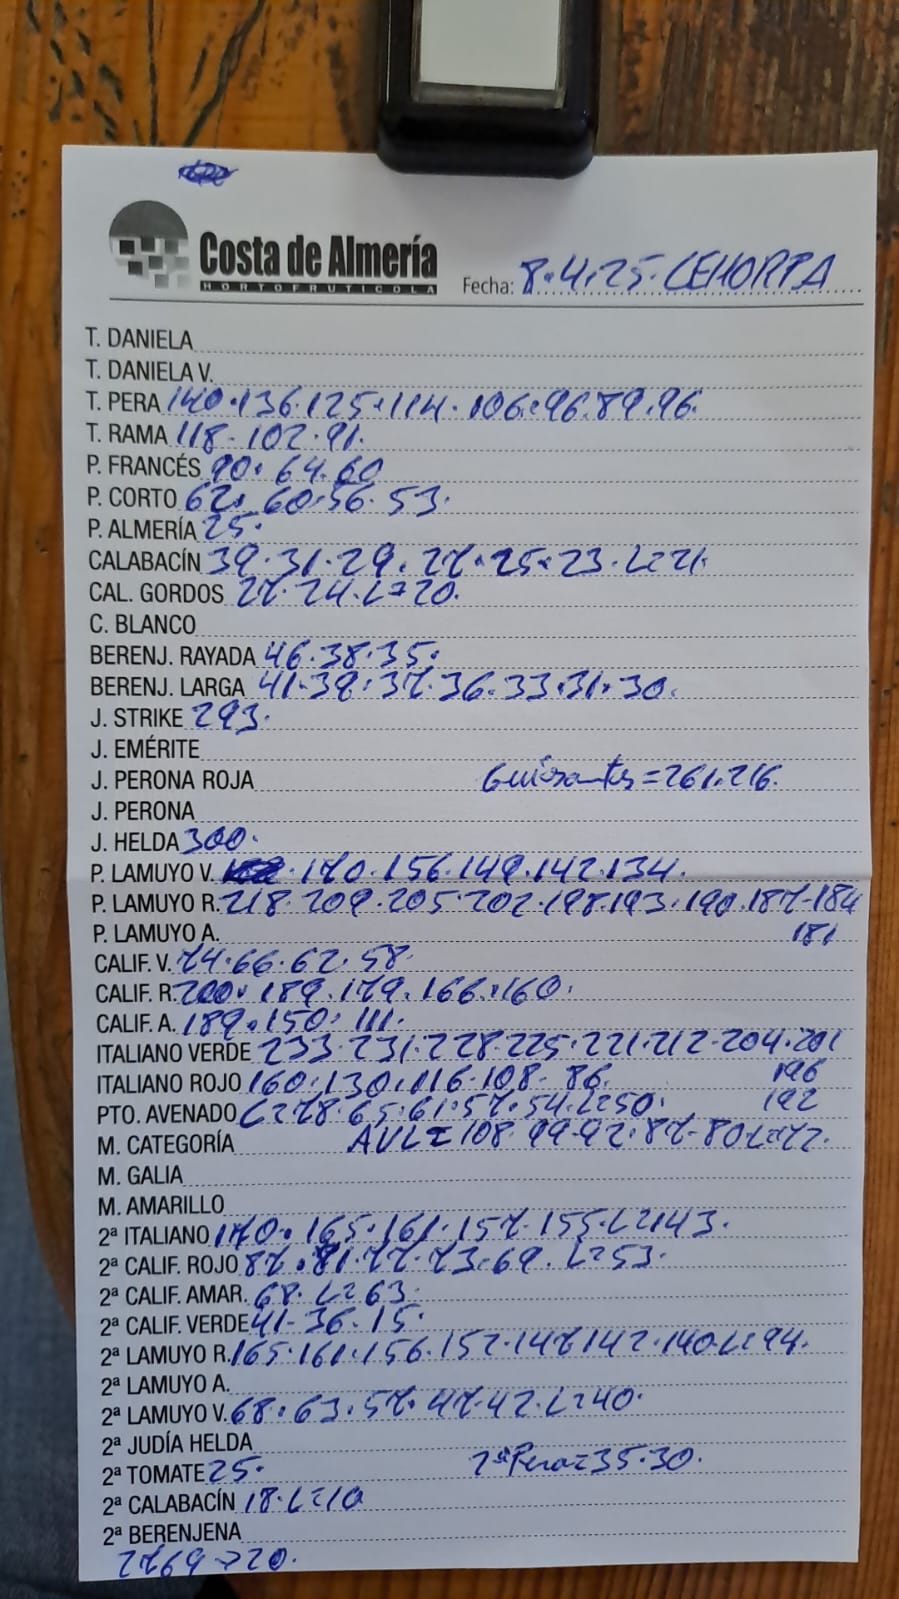 Costa de Almería
HORTOFRUTICOLA
Fecha: 8.4.25. CEHORPA
T. DANIELA
T. DANIELA V.
T. PERA 140.136.125.114.106.96.89.96.
T. RAMA 118-102.91.
P. FRANCÉS 90.64.60
P. CORTO 62.60.56.53.
P. ALMERÍA 25.
CALABACÍN 39.31.29.27.25.23.L=21.
CAL. GORDOS 27.24.L=20.
C. BLANCO
BERENJ. RAYADA 46.38.35.
BERENJ. LARGA 41-39.37.36.33.31.30.
J. STRIKE 293.
J. EMÉRITE
J. PERONA ROJA Guisantes=261.216.
J. PERONA
J. HELDA 300.
P. LAMUYO V. 170.156.149.142.134.
P. LAMUYO R. 218.209.205.202.198.193.190.187-184
P. LAMUYO A. 181
CALIF. V. 74.66.62.58.
CALIF. R. 200.189.179.166.160.
CALIF. A. 189.150.111.
ITALIANO VERDE 233.231.228.225.221.212-204.201
ITALIANO ROJO 160.130.116.108-86. 196
PTO. AVENADO C=78.65.61.57.54.L=50. 192
M. CATEGORÍA AVL=108.99-92.87-80.L=72.
M. GALIA
M. AMARILLO
2ª ITALIANO 170.165.161.157.155.L=143.
2ª CALIF. ROJO 87.81.77.73.69.L=53.
2ª CALIF. AMAR. 68.L=63.
2ª CALIF. VERDE 41-36.15.
2ª LAMUYO R. 165.161.156.152.147.142.140.L=94.
2ª LAMUYO A.
2ª LAMUYO V. 68.63.57.47.42.L=40.
2ª JUDÍA HELDA
2ª TOMATE 25. 2ª Pera=35.30.
2ª CALABACÍN 18.L=10
2ª BERENJENA
2769 20.